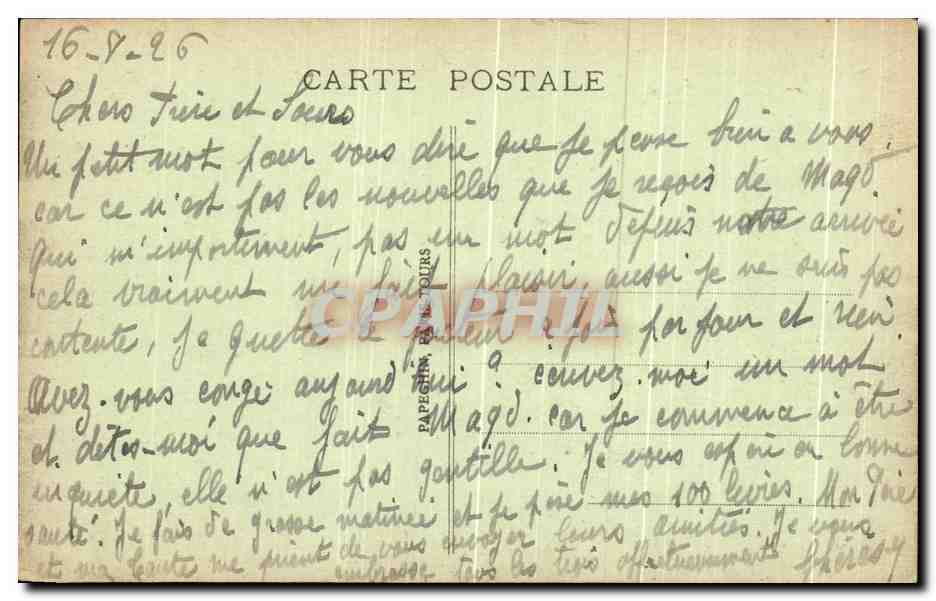 16-8-26
CARTE POSTALE
Chers Frère et Sœurs
Un petit mot pour vous dire que je pense bien a vous.
car ce n'est pas les nouvelles que je reçois de Magd.
qui m'importunent, pas un mot depuis notre arrivée
cela vraiment me fait plaisir, aussi je ne suis pas
contente, je guette le facteur 2 fois par jour et rien.
Avez-vous congé aujourd'hui? écrivez-moi un mot
et dites-moi que fait Magd. car je commence à être
inquiète, elle n'est pas gentille. Je vous espère en bonne
santé. Je fais de grasse matinée et je pèse mes 100 livres. Mon Père
et ma Tante me prient de vous envoyer leurs amitiés. Je vous
embrasse tous les trois affectueusement
PAPEGHIN, PARIS TOURS
CPAPHIL